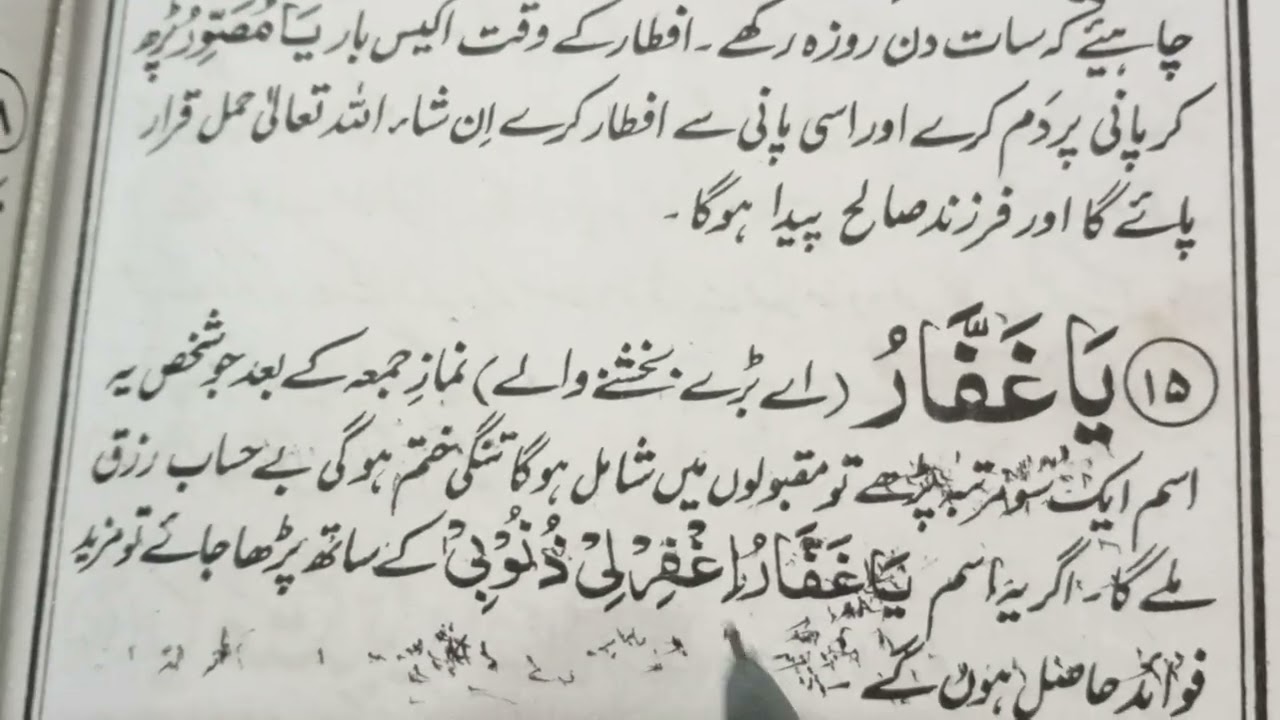 چاہیئے کہ سات دن روزہ رکھے۔ افطار کے وقت اکیس بار یَا مُصَوِّرُ پڑھ
کر پانی پر دَم کرے اور اسی پانی سے افطار کرے اِن شاء اللہ تعالیٰ حمل قرار
پائے گا اور فرزند صالح پیدا ہوگا۔
۱۵ یَا غَفَّارُ (اے بڑے بخشنے والے) نمازِ جمعہ کے بعد جو شخص یہ
اسم ایک سو مرتبہ پڑھے تو مقبولوں میں شامل ہوگا تنگی ختم ہوگی بے حساب رزق
ملے گا۔ اگر یہ اسم یَا غَفَّارُ اغْفِرْ لِیْ ذُنُوْبِیْ کے ساتھ پڑھا جائے تو مزید
فوائد حاصل ہوں گے